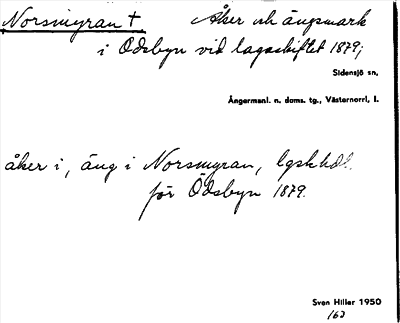 Norsmyran † Åker och ängsmark
i Ödsbyn vid lagaskiftet 1879;
Sidensjö sn,
Ångermanl. n. doms. tg., Västernorrl. l.
åker i, äng i Norsmyran, lgskhdl.
för Ödsbyn 1879.
Sven Hiller 1950
162